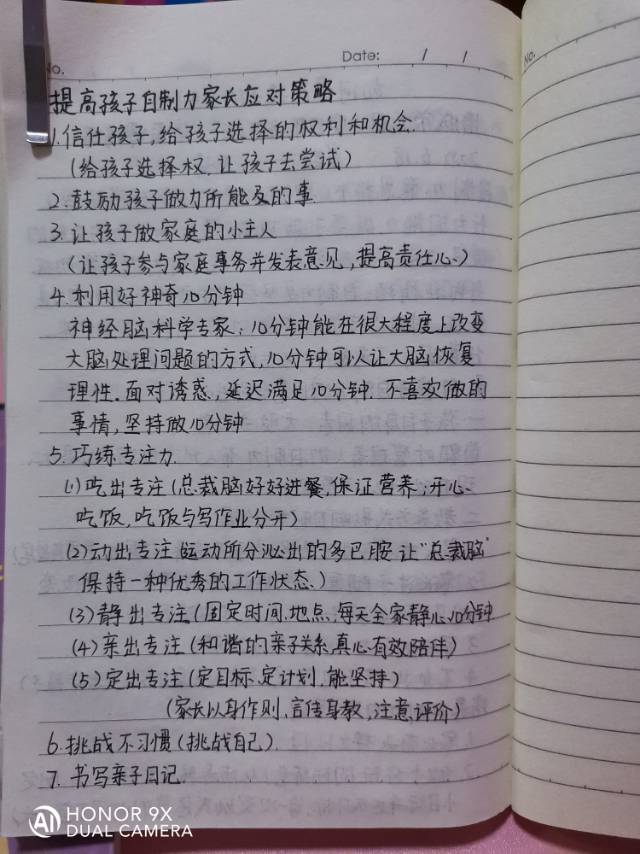 No.
Date: / /
No.
提高孩子自制力家长应对策略
1.信任孩子,给孩子选择的权利和机会.
(给孩子选择权,让孩子去尝试)
2.鼓励孩子做力所能及的事.
3.让孩子做家庭的小主人
(让孩子参与家庭事务并发表意见,提高责任心.)
4.利用好神奇10分钟
神经脑科学专家:10分钟能在很大程度上改变
大脑处理问题的方式,10分钟可以让大脑恢复
理性.面对诱惑,延迟满足10分钟.不喜欢做的
事情,坚持做10分钟
5.巧练专注力.
(1)吃出专注(总裁脑好好进餐,保证营养;开心
吃饭,吃饭与写作业分开)
(2)动出专注(运动所分泌出的多巴胺让"总裁脑"
保持一种优秀的工作状态.)
(3)静出专注(固定时间,地点,每天全家静心10分钟
(4)亲出专注(和谐的亲子关系,真心有效陪伴)
(5)定出专注(定目标,定计划,能坚持)
(家长以身作则,言传身教,注意评价)
6.挑战不习惯(挑战自己)
7.书写亲子日记.
AI HONOR 9X
DUAL CAMERA